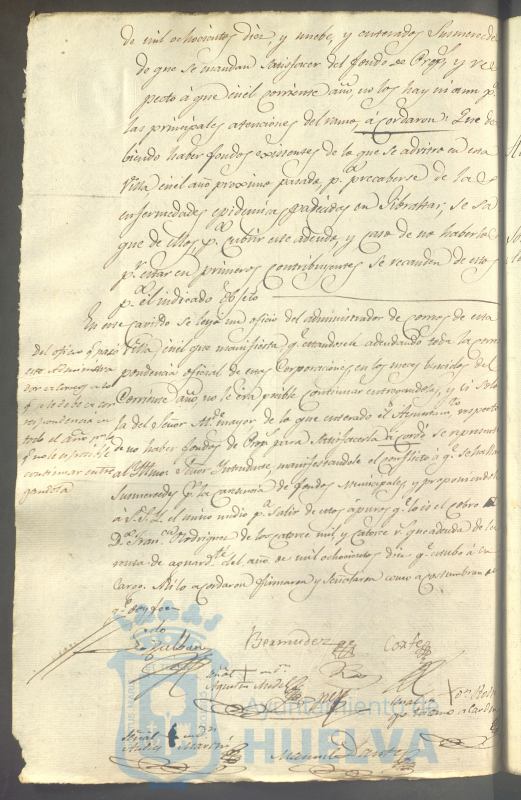 de mil ochocientos diez y nuebe, y enterados Sumerced
do que se mandan Satisfacer del fondo de Propº y res
pecto á que en el corriente año, no los hay ni aun pª
las principales atenciones del ramo, acordaron: Que de
biendo haber fondos existentes de lo que se advierte en esta
Villa en el año proximo pasado, pª precaberse de las
enfermedades epidemicas padecidas en Gibraltar, se sa
que de ellos, pª cubrir este adeudo, y caso de no haberlos
pr estar en primeros contribuyentes se recauden de estos
pª el indicado Objeto
En este cavildo se leyó un oficio del administrador de correos de esta
Villa en el que manifiesta qe estandosele adeudando toda la corres
pondencia oficial de estas Corporaciones en los meses bencidos del
Corriente año no le era posible continuar entregandola, y si solo
la del Señor Alcde mayor de lo que enterado el Ayuntamto respecto
de no haber fondos de Propº para Satisfacerla acordó se represente
al Yltmo Señor Yntendente, manifestandole el conflicto á qe se hallan
Sumercedes pr la carencia de fondos Municipales y proponiendole
á S.S.Y. el unico medio pª salir de estos apuros qe lo es el cobro
Dn Franco Rodriguez de los catorce mil, y catorce rs que adeuda de la
renta de aguardte del año de mil ochocientos diez qe estubo á su
Cargo. Asi lo acordaron firmaron y señalaron como acostumbran de
qe doy fee
del oficio qe pasó
este Administra
dor de correos sobre
qe se le debe la cor
respondencia en
todo el año pr lo
qe no le es posible
continuar entre
gandola
Bermudez
Corte
Señal + de
Agustin Medel
Señal + de
Martin
Manuel Dante
Ayuntamiento de
HUELVA